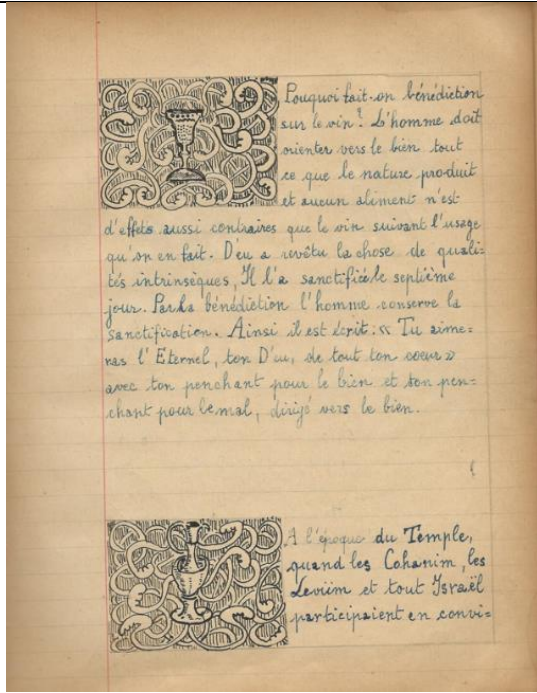 Pouquoi fait-on bénédiction
sur le vin? L'homme doit
orienter vers le bien tout
ce que le nature produit
et aucun aliment n'est
d'effets aussi contraires que le vin suivant l'usage
qu'on en fait. D'eu a revêtu la chose de quali=
tés intrinsèques, Il l'a sanctifiée le septième
jour. Par la bénédiction l'homme conserve la
sanctification. Ainsi il est écrit: « Tu aime=
ras l'Eternel, ton D'eu, de tout ton coeur »
avec ton penchant pour le bien et ton pen=
chant pour le mal, dirigé vers le bien.
A l'époque du Temple,
quand les Cohanim, les
Leviim et tout Israël
participaient en convi=